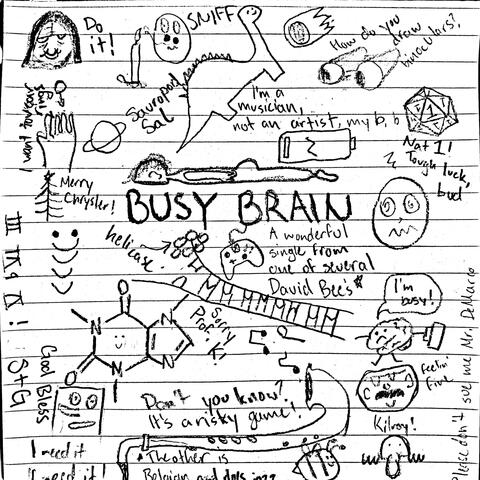 Do
it!
SNIFF
How do you
draw
binoculars?
Sauropod
Sal
I'm a
musician,
not an artist, my b, b
1
Nat 1!
Tough luck,
bud
Merry
Chrysler!
BUSY BRAIN
helicase!
A wonderful
single from
one of several
David Bee's*
I'm
busy!
Sorry
Prof. K!
O
N
N
O
N
N
God Bless
S+G
Don't you know?
It's a risky game!
Feelin'
Fine
Kilroy!
Please don't sue me Mr. DeMarco
I need it
I need it!
*The other is
Belgian and does jazz